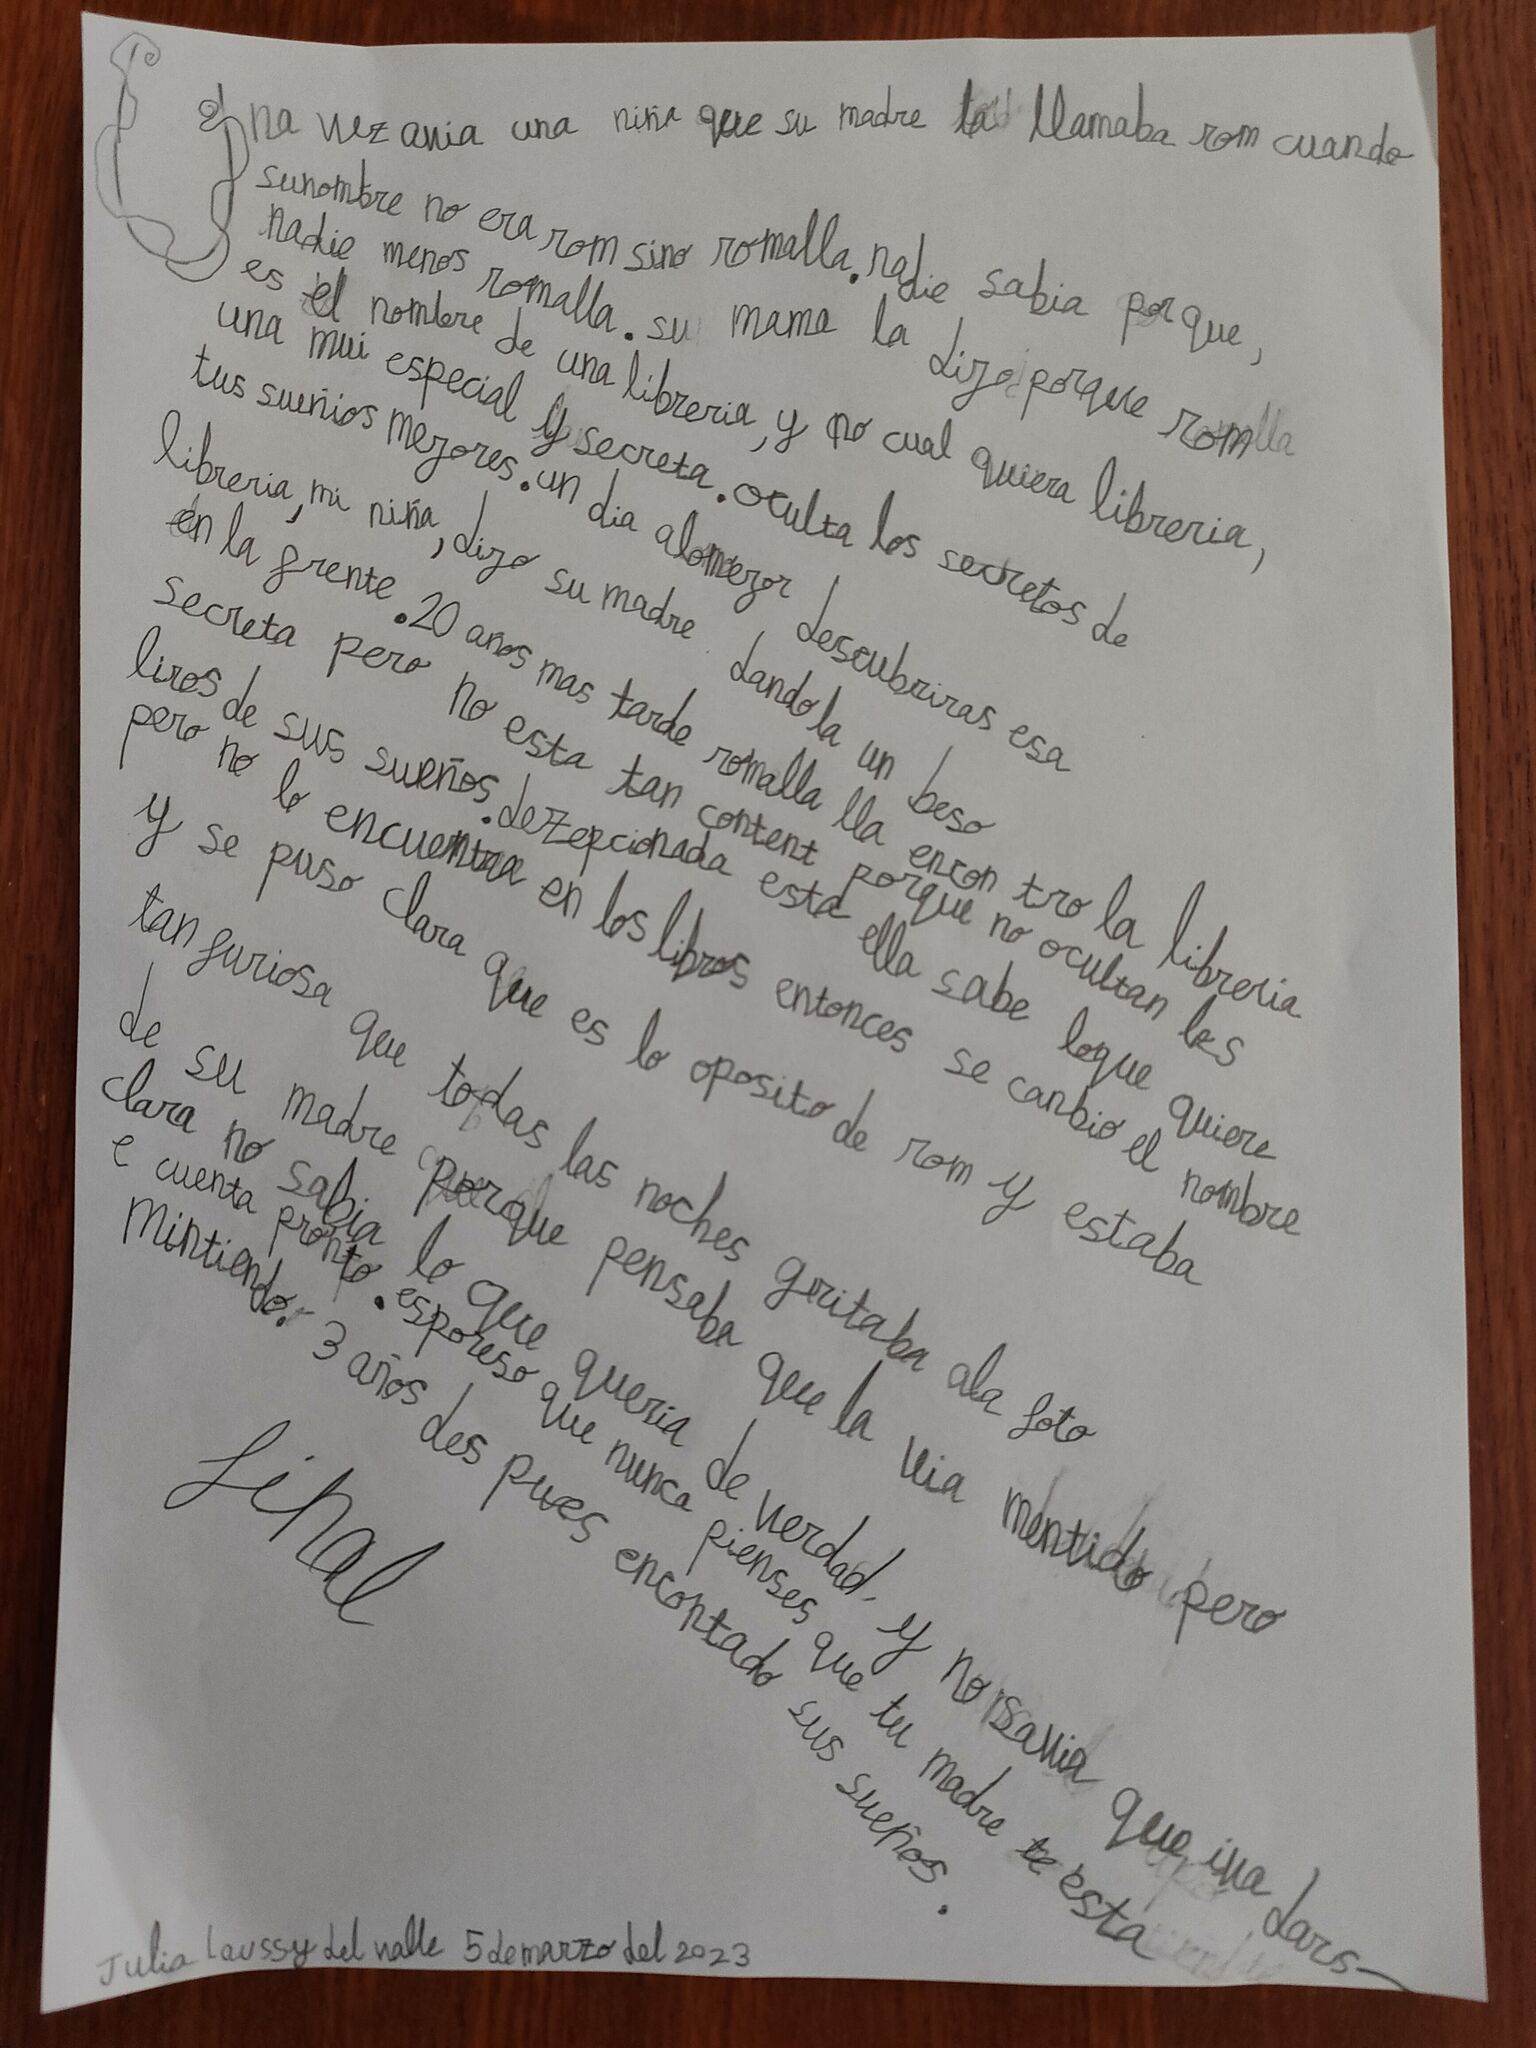 Una vez avia una niña que su madre la llamaba rom cuando
sunombre no era rom sino romalla. nadie sabia porque,
nadie menos romalla. su mama la dijo porque romalla
es el nombre de una libreria, y no cual quiera libreria,
una mui especial y secreta. oculta los secretos de
tus sueñios mejores. un dia alomejor descubriras esa
libreria, mi niña, dijo su madre dandola un beso
en la frente. 20 años mas tarde romalla lla encon tro la libreria
secreta pero no esta tan content porque no ocultan los
liros de sus sueños. dezepcionada esta ella sabe loque quiere
pero no lo encuentra en los libros entonces se canbio el nombre
y se puso clara que es lo oposito de rom y estaba
tan furiosa que todas las noches gritaba ala foto
de su madre porque pensaba que la via mentido pero
clara no sabia lo que queria de verdad. y no savia que iva dars-
e cuenta pronto. esporeso que nunca pienses que tu madre te esta
mintiendo. 3 años des pues encontado sus sueños.
final
Julia Laussy del valle 5 de marzo del 2023